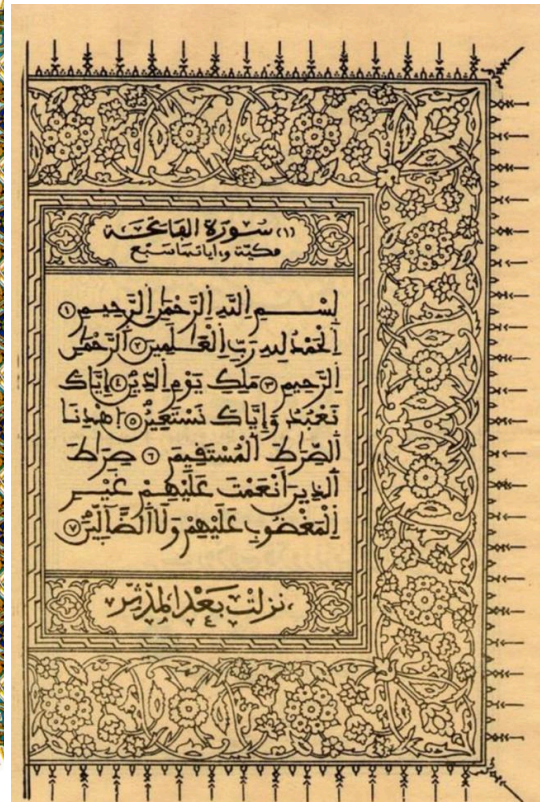 (١) سُورَة الفَاتِحَة
مكيّة وءاياتها سَبْع
بِسْمِ اِللَّهِ اِلرَّحْمَٰنِ اِلرَّحِيمِ ١
اَلْحَمْدُ لِلهِ رَبِّ اِلْعَٰلَمِينَ ٢ اَلرَّحْمَٰنِ
اِلرَّحِيمِ ٣ مَلِكِ يَوْمِ اِلدِّينِ ٤ إِيَّاكَ
نَعْبُدُ وَإِيَّاكَ نَسْتَعِينُ ٥ اِهْدِنَا
اَلصِّرَٰطَ اَلْمُسْتَقِيمَ ٦ صِرَٰطَ
اَلذِينَ أَنْعَمْتَ عَلَيْهِمْ غَيْرِ
اِلْمَغْضُوبِ عَلَيْهِمْ وَلَا اَلضَّآلِّينَ ٧
نزلت بَعْد المدّثر